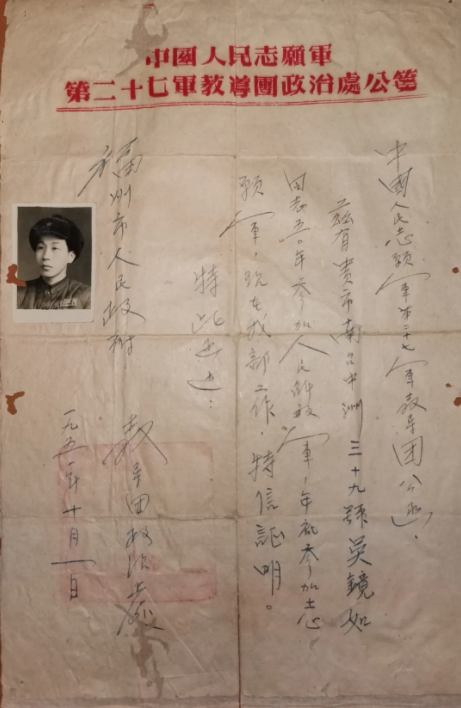 中國人民志願軍
第二十七軍教導團政治處公箋
中國人民志願軍第二十七軍教导团公函、
兹有貴市南台中洲三十九號吳鏡如
同志五〇年參加人民解放軍,年底參加志
願軍,現在我部工作,特信証明。
特此函达:
福州市人民政府
教导团政治處
一九五一年十月一日